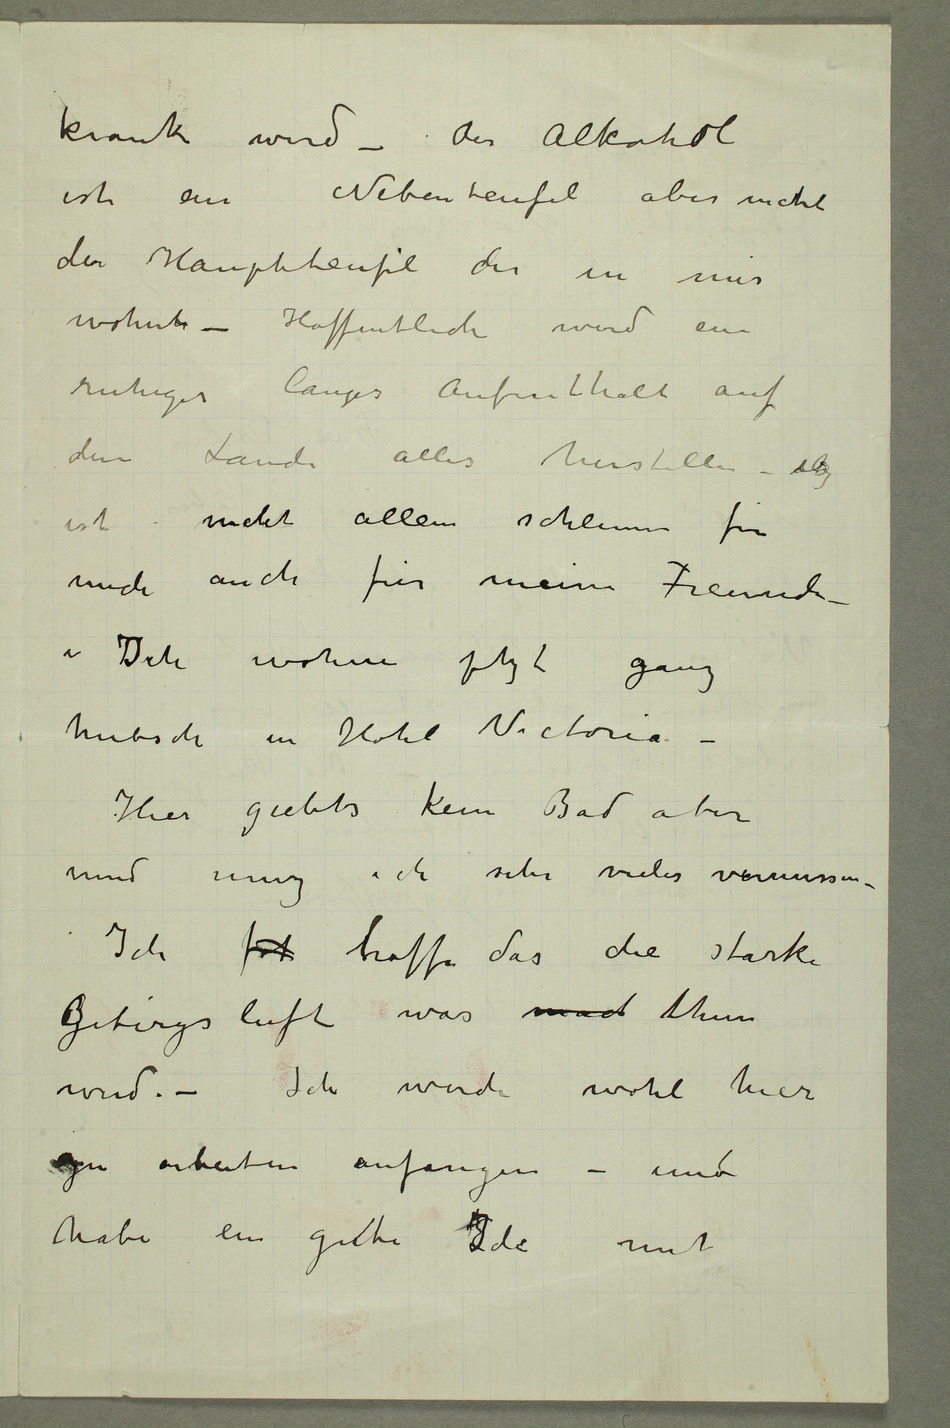 krank wird – der Alkohol
ist ein Nebenteufel aber nicht
der Hauptteufel der in mir
wohnt – Hoffentlich wird ein
ruhiger langer Aufenthalt auf
den Lande alles herstellen – es
ist nicht allein schlimm für
mich auch für meine Freunde –
Ich wohne jetzt ganz
hübsch in Hotel Victoria –
Hier giebts kein Bad aber
und muz ich sehr vieles vermissen –
Ich hoffe das die starke
Gebirgsluft was thun
wird. – Ich werde wohl hier
zu arbeiten anfangen – und
habe ein gute Ide mit